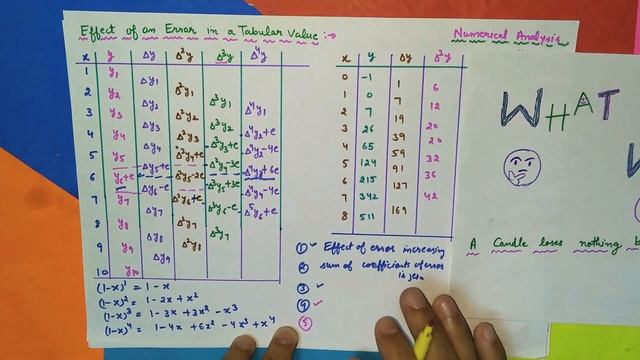 Effect of an Error in a Tabular Value :→
Numerical Analysis
x y Δy Δ²y Δ³y Δ⁴y
1 y₁
Δy₁
2 y₂ Δ²y₁
Δy₂ Δ³y₁
3 y₃ Δ²y₂ Δ⁴y₁
Δy₃ Δ³y₂
4 y₄ Δ²y₃ Δ⁴y₂+e
Δy₄ Δ³y₃+e
5 y₅ Δ²y₄+e Δ⁴y₃-4e
Δy₅+e Δ³y₄-3e
6 y₆+e Δ²y₅-2e Δ⁴y₄+6e
Δy₆-e Δ³y₅+3e
7 y₇ Δ²y₆+e Δ⁴y₅-4e
Δy₇ Δ³y₆-e
8 y₈ Δ²y₇ Δ⁵y₆+e
Δy₈ Δ³y₇
9 y₉ Δ²y₈
Δy₉
10 y₁₀
(1-x)¹ = 1-x
(1-x)² = 1-2x+x²
(1-x)³ = 1-3x+3x²-x³
(1-x)⁴ = 1-4x+6x²-4x³+x⁴
x y Δy Δ²y
0 -1
1 6
1 0 7
12
2 7 19
20
3 26 39
20
4 65 59
32
5 124 91
36
6 215 127
42
7 342
8 511 169
① Effect of error increasing
② sum of coefficients of error
is zero
③
④
⑤
WHAT
A Candle loses nothing b